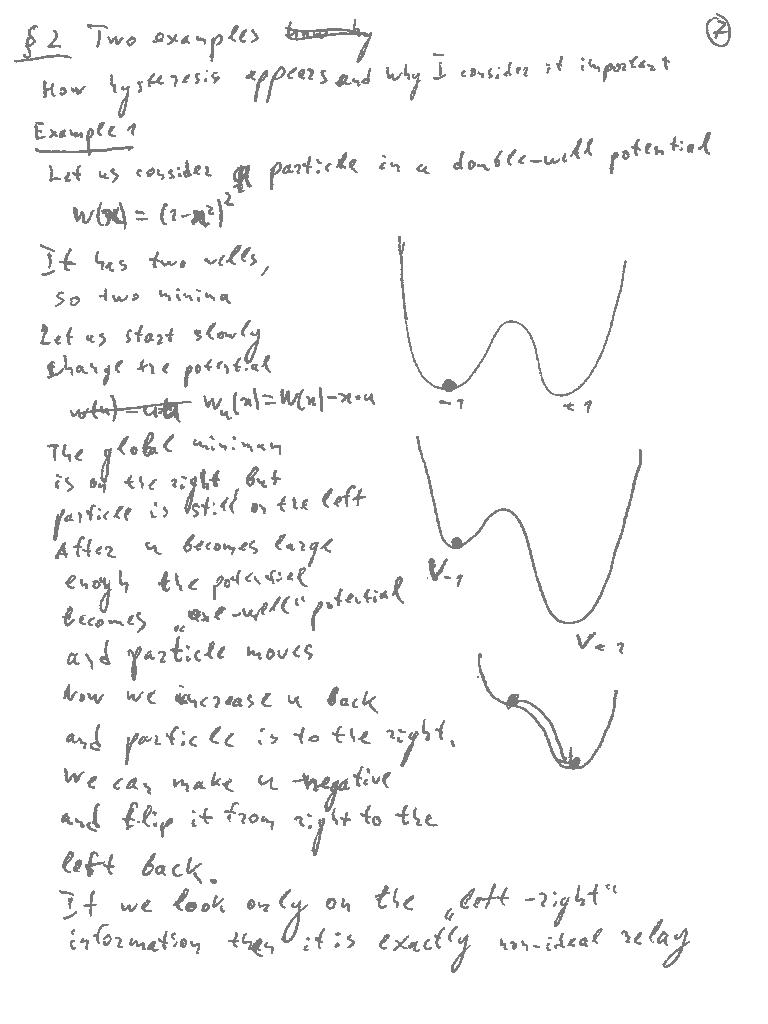 § 2 Two examples
7
How hysteresis appears and why I consider it important
Example 1
Let us consider a particle in a double-well potential
W(x) = (1-x²)²
It has two wells,
so two minima
Let us start slowly
change the potential
W_u(x) = W(x) - x·u
-1
+1
The global minimum
is on the right but
particle is still on the left
After u becomes large
enogh the potential
becomes „one-well“ potential
and particle moves
V-1
V+1
Now we increase u back
and particle is to the right.
We can make u negative
and flip it from right to the
left back.
If we look only on the „left-right“
information then it is exactly non-ideal relay